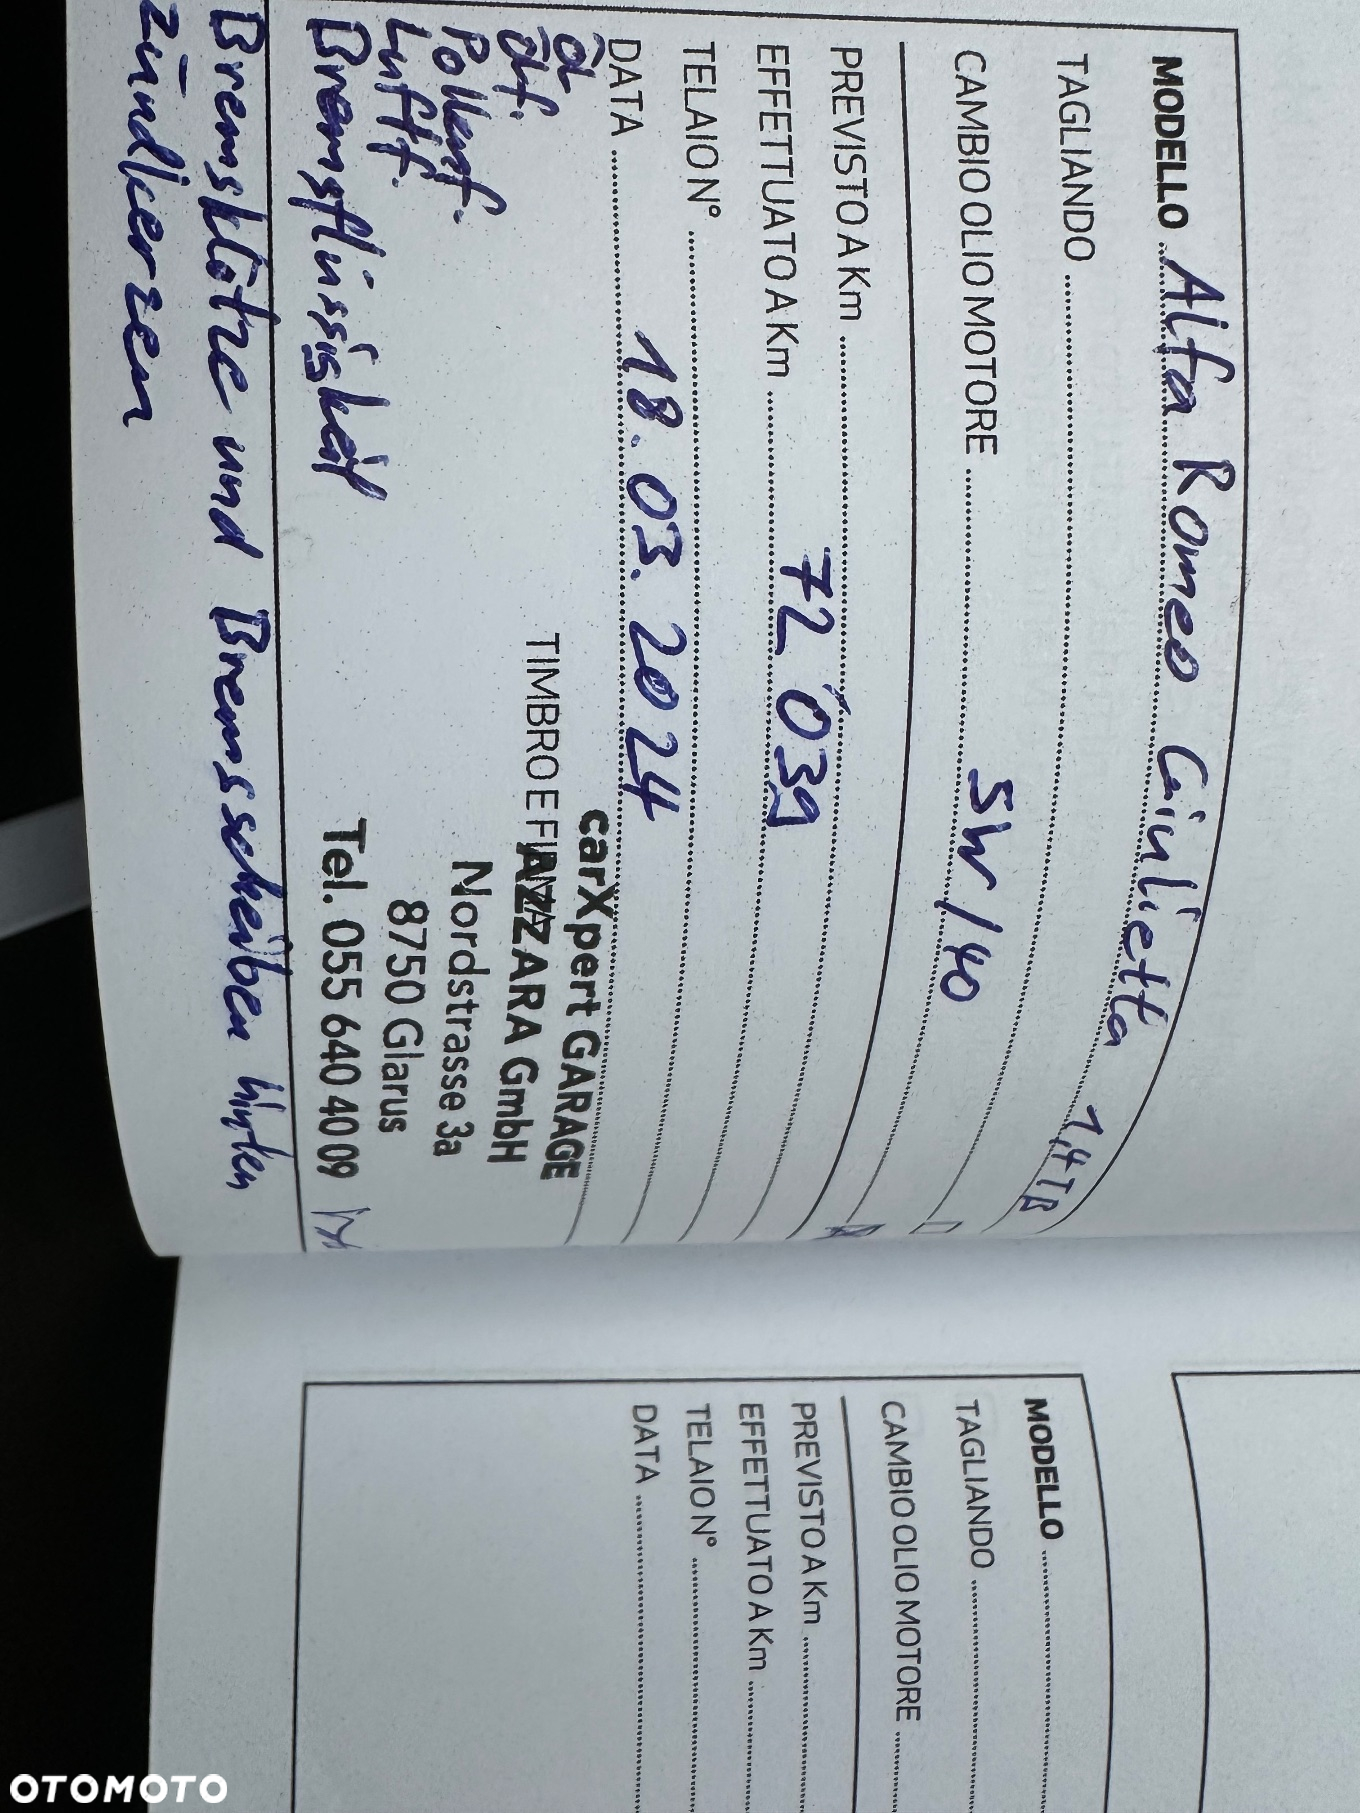 MODELLO Alfa Romeo Giulietta 1,4 TB
TAGLIANDO
CAMBIO OLIO MOTORE 5W/40
PREVISTO A Km
EFFETTUATO A Km 72'039
TELAIO N°
DATA 18.03.2024
Öl
Ölf.
Pollenf.
Luftf.
Bremsflüssigkeit
TIMBRO E FIRMA
carXpert GARAGE
AZZARA GmbH
Nordstrasse 3a
8750 Glarus
Tel. 055 640 40 09
Bremsklötze und Bremsscheiben hinten
Zündkerzen
MODELLO
TAGLIANDO
CAMBIO OLIO MOTORE
PREVISTO A Km
EFFETTUATO A Km
TELAIO N°
DATA
OTOMOTO